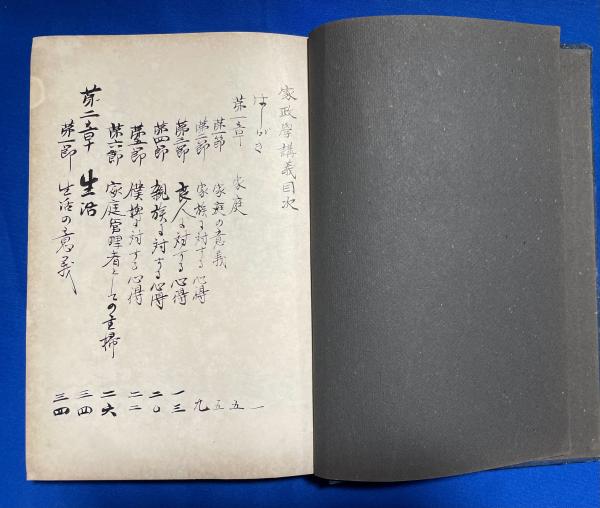 家政学講義目次
はしがき 一
第一章 家庭 五
第一節 家庭の意義 五
第二節 家族に対する心得 九
第三節 良人に対する心得 一三
第四節 親族に対する心得 二〇
第五節 僕婢に対する心得 二二
第六節 家庭管理者としての主婦 二六
第二章 生活 三四
第一節 生活の意義 三四